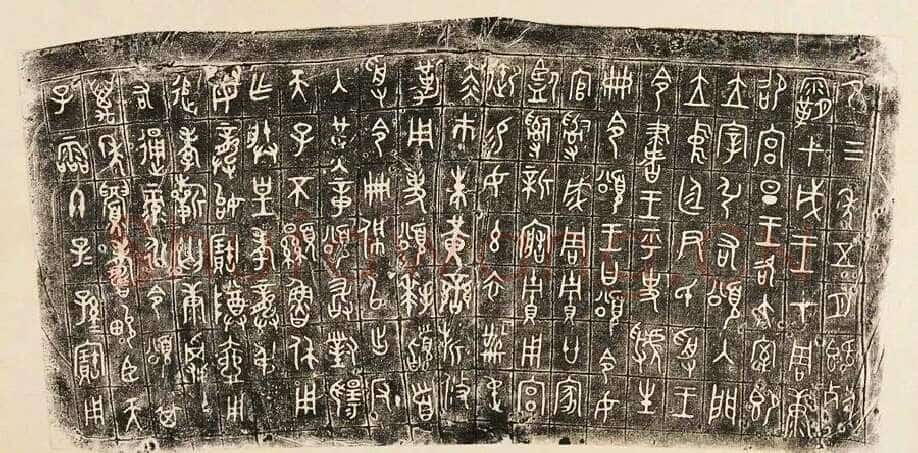 隹三年五月既死
霸甲戌王才周康
卲宮旦王各大室即
立宰弘右頌入門
立中廷尹氏受王
令書王乎史虢生
冊令頌王曰頌令女
官𤔲成周貯廿家
監𤔲新寤貯用宮
御易女玄衣黹屯
赤市朱黃䜌旂攸
勒用事頌拜稽首
受令冊佩以出反
入堇章頌敢對揚
天子不顯魯休用
乍朕皇考龏弔皇
母龏姒寶尊壺用
追孝祈匄康𩛥屯
右通彔永令頌其
萬年眉壽畯臣天
子霝冬子孫寶用